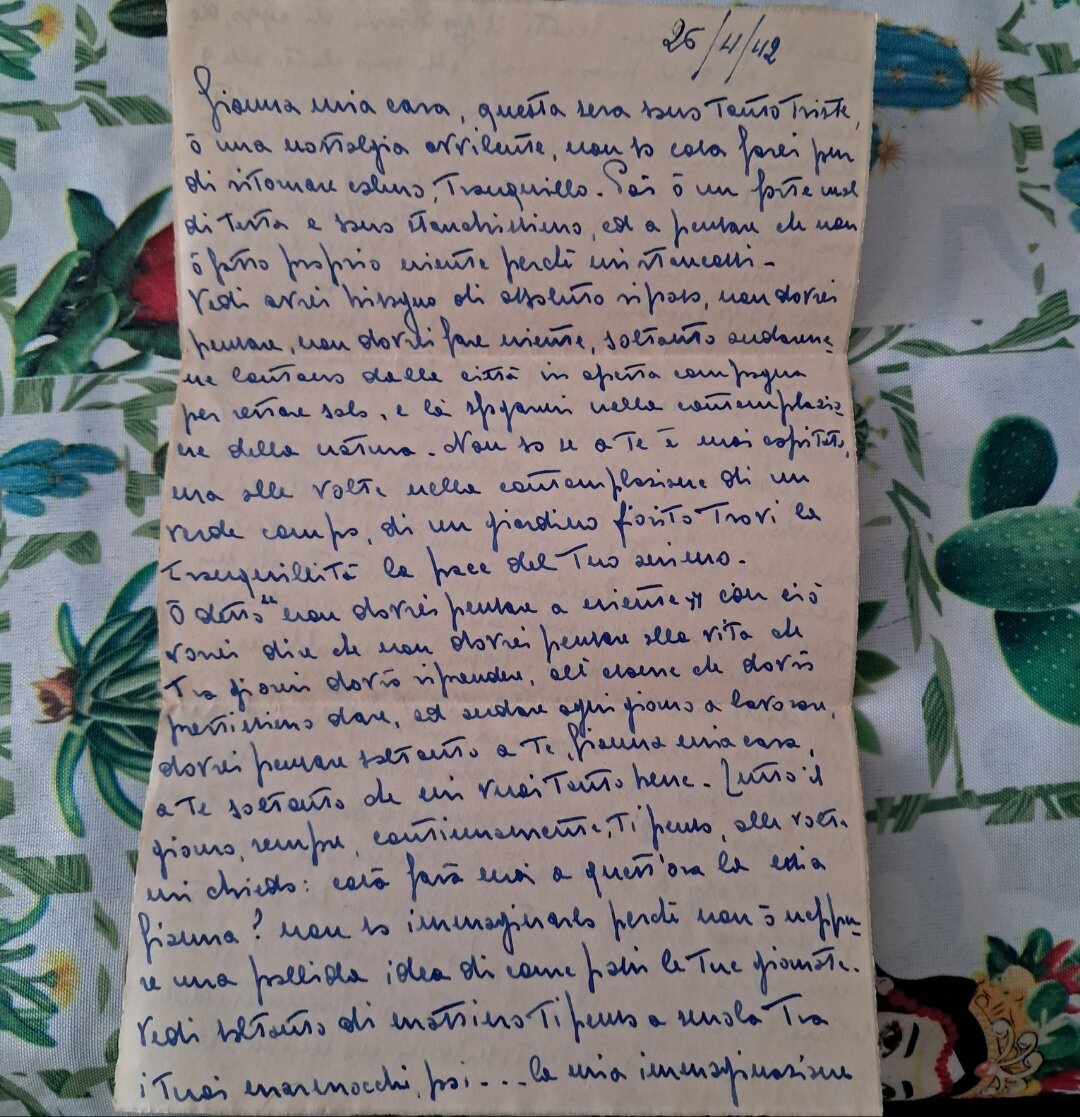 25/4/42
Gianna mia cara, questa sera sono tanto triste,
ò una nostalgia avvilente, non so cosa farei pur
di ritornare calmo, tranquillo. Poi ò un forte mal
di testa e sono stanchissimo, ed a pensare che non
ò fatto proprio niente perché mi stancassi -
Vedi avrei bisogno di assoluto riposo, non dovrei
pensare, non dovrei fare niente, soltanto andarme=
ne lontano dalla città in aperta campagna
per restare solo, e là sfogarmi nella contemplazio=
ne della natura. Non so se a te è mai capitato,
ma alle volte nella contemplazione di un
verde campo, di un giardino fiorito trovi la
tranquillità la pace del tuo animo.
Ò detto "non dovrei pensare a niente" con ciò
vorrei dire che non dovrei pensare alla vita che
tra giorni dovrò riprendere, all'esame che dovrò
prestissimo dare, ed andare ogni giorno a lavorare,
dovrei pensare soltanto a te, Gianna mia cara,
a te soltanto che mi vuoi tanto bene. Tutto il
giorno, sempre, continuamente, ti penso, alle volte
mi chiedo: cosa farà mai a quest'ora la mia
Gianna? non so immaginarlo perché non ò neppu=
re una pallida idea di come passi le tue giornate.
Vedi soltanto di mattino ti penso a scuola tra
i tuoi marmocchi, poi.... la mia immaginazione